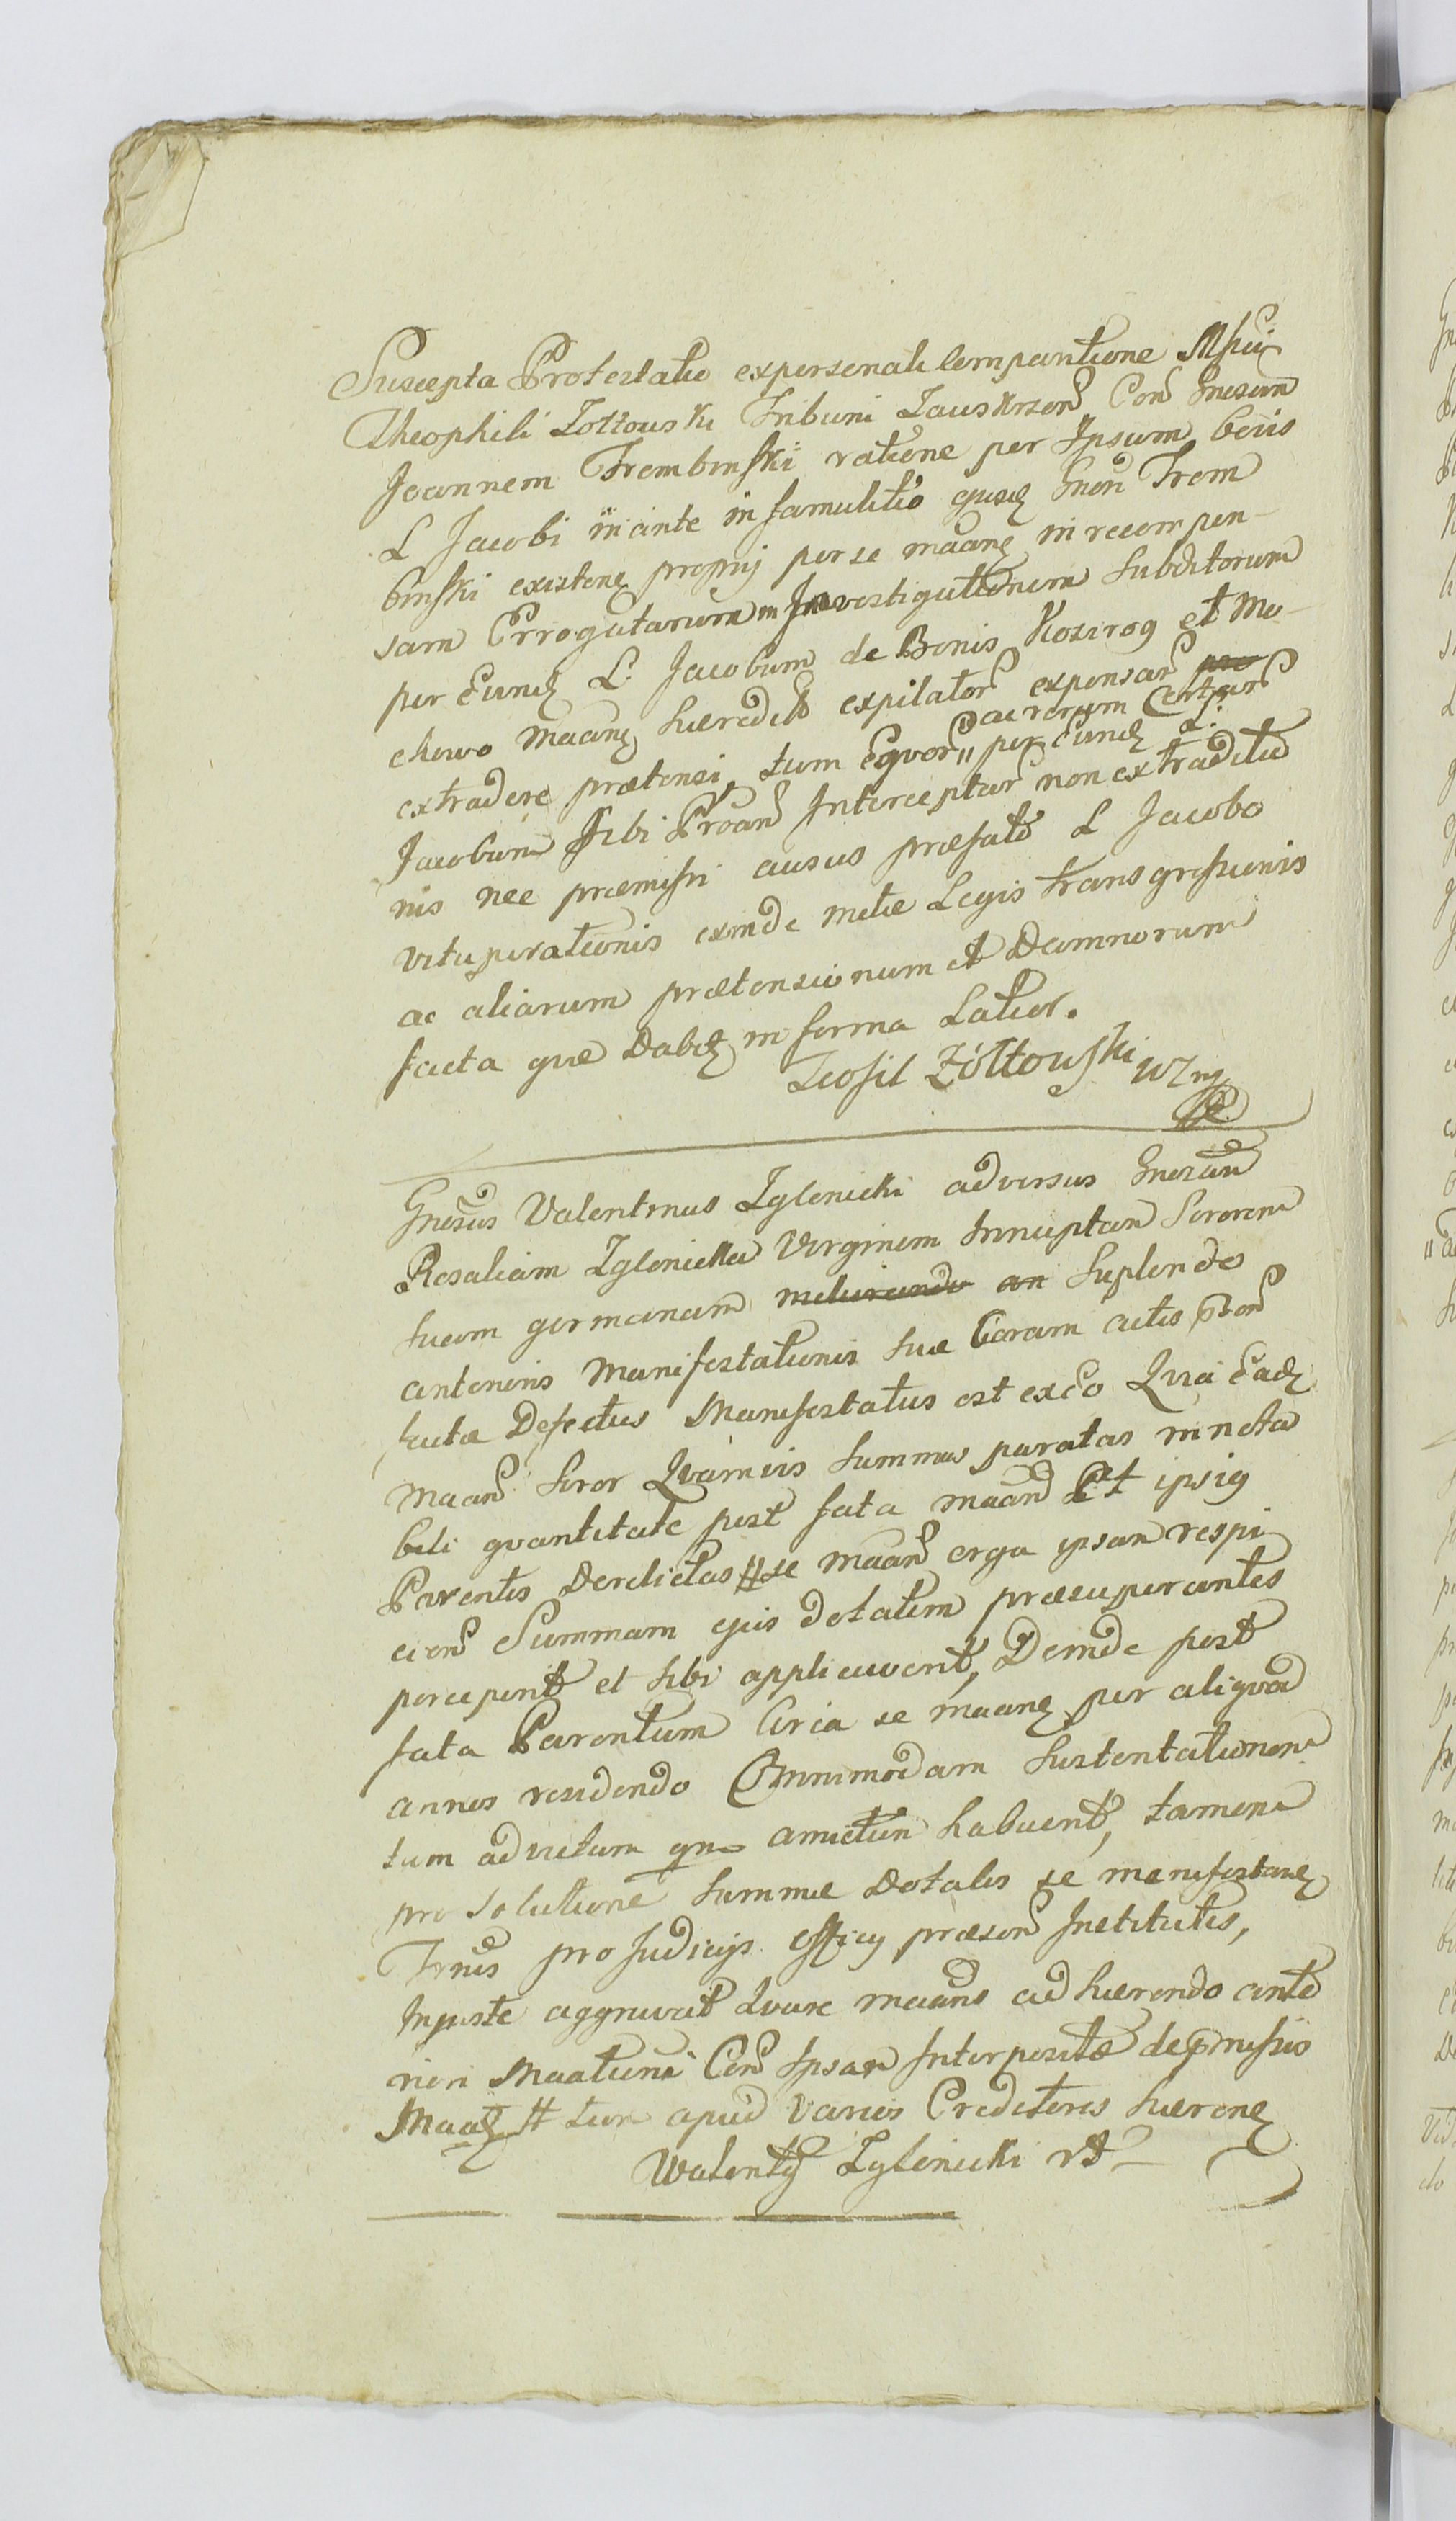 Suscepta Protestatio ex personali Compantione Mfici
Theophili Zołtowski Tribuni Zauskrzen Con Gnesum
Joannem Trembinski ratione per Ipsum
L Jacobi in ante in famulitio Gnen Trem
binski existen proprij per se maane in recompen-
sam Errogatarum in Investigationem Subditorum
per Eund L. Jacobum de Bonis Kozirog et Mo-
chowo maane haeredit expilator expensar pro
extradere praetensi, tum Equor " ac rerum Certar
per Eund L.
Jacobum Sibi Proan Interceptar non extraditio
nis nec praemissi ausus praefato L Jacobo
vituperationis exinde metae Legis transgressionis
ac aliarum praetensionum et Damnorum
facta quae Dabit in forma Latior.
Teofil Zółtowski WZ
Gnesus Valentinus Zglenicki adversus Gnezam
Rosaliam Zglenicka Virginem Innuptam Sororem
suam germanam an Suplendo
anterioris Manifestationis suae Coram actis
factae Defectus Manifestatus est ex eo Quia Ead
maan Soror Quamvis Summas paratas in nota
bili quantitate post fata maan et ipsig
Parentis Derelictas # se maan erga ipsam respi
cien Summam ejus dotalem praesuperantes
perceperit et sibi applicaverit, Deinde post
fata Parentum Circa se maane per aliquod
annos residendo Omnimodam Sustentationem
tum ad victum qm amictum habuerit, tamen
pro solutione summae Dotalis se manifestane
Trnis pro Judicijs officij praesen Institutis,
Injuste aggravat Quare maans adhaerendo ante
riori Maationi Con Ipsam Interpositae de praemissis
Maat # tum apud varios Creditores haerene
Walenty Zglenicki